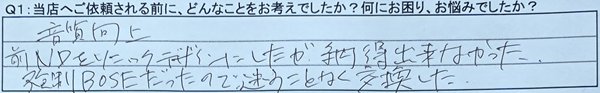 Q1:当店へご依頼される前に、どんなことをお考えでしたか?何にお困り、お悩みでしたか?
音質向上
前NDをソニックデザインにしたが納得出来なかった。
BOSEだったので迷うことなく交換した。